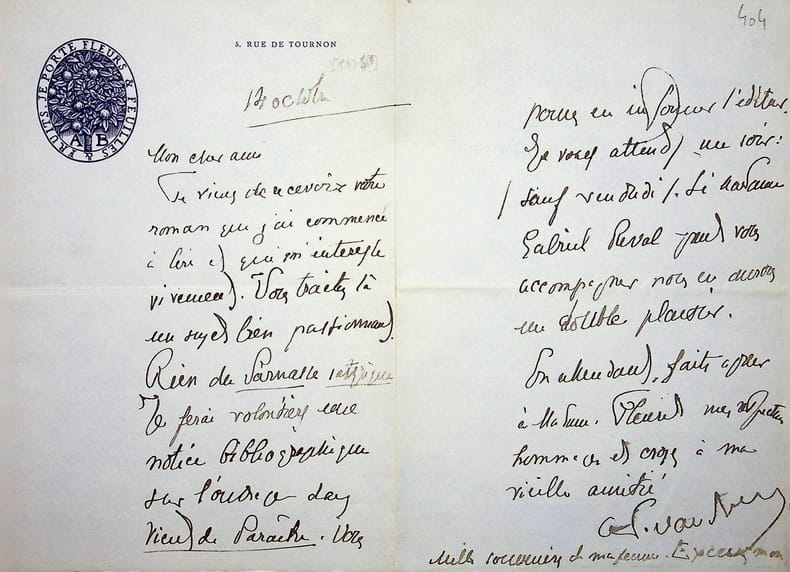 404
5. RUE DE TOURNON
FRUITS. JE PORTE FLEURS & FEUILLES &
A B
14 octobre
Mon cher ami
Je viens de recevoir votre
roman que j'ai commencé
à lire et qui m'intéresse
vivement. Vous traitez là
un sujet bien passionnant.
Rien du Parnasse satyrique
Je ferai volontiers une
notice bibliographique
sur l'ouvrage dans
Vient de Paraître. Vous
pouvez en informer l'éditeur.
Je vous attends un soir :
/ sauf vendredi /. Si Madame
Gabriel Reval peut vous
accompagner nous en aurons
un double plaisir.
En attendant, faites agréer
à Madame. Fleuret mes respectueux
hommages et croyez à ma
vieille amitié
Mille souvenirs de ma femme. Excusez mon